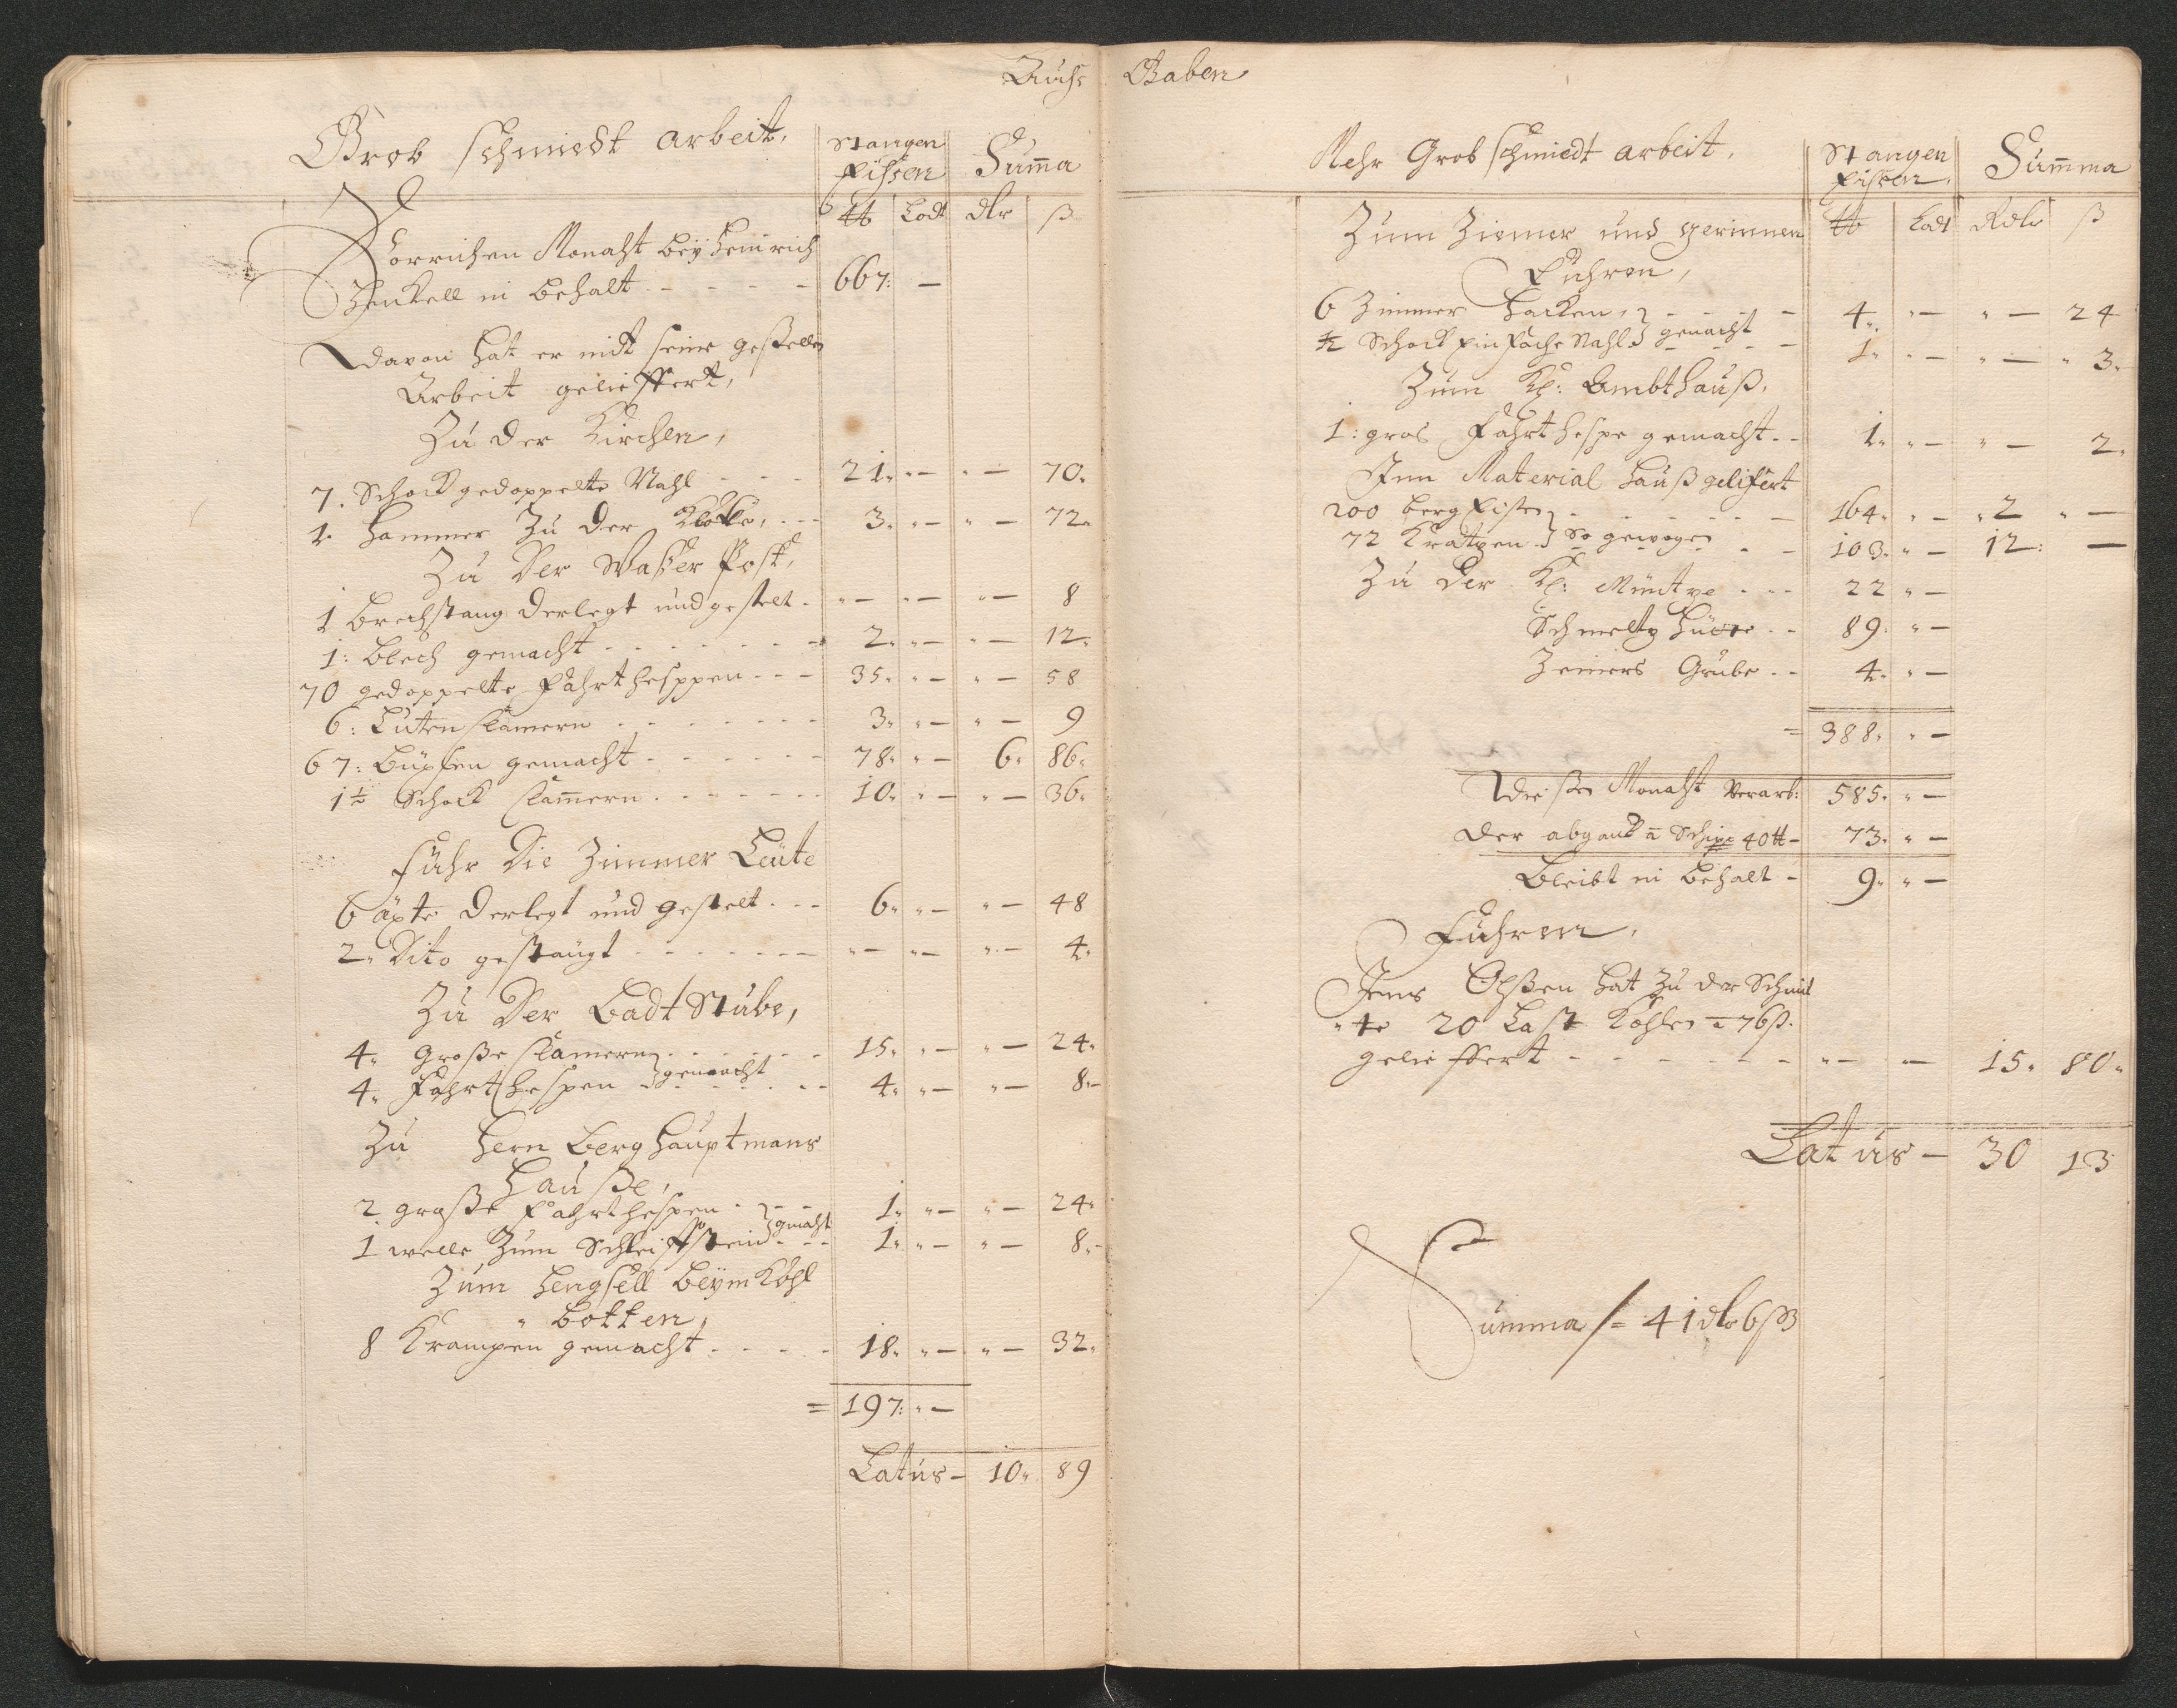 Auß Gaben
Grob schmiedt arbeit,
Stangen
Eissen Summa
℔ Lodt dlr ß
Vorrichen Monaht bey Heinrich
Henckell in behalt - - - - - 667: -
davon hat er mit seine gesellen
Arbeit gelieffert,
Zu der Kirchen,
7. Schock gedoppelte Nahl - - - 21. „- „- 70.
1. Hammer Zu der Klocke, - - - 3. „- „- 72.
Zu der Wasser Post,
1 Brechstang Verlegt und gestelt - „- „- „- 8
1: blech gemacht - - - - - - - 2. „- „- 12.
70 gedoppelte Fahrt hesppen - - - 35. „- „- 58
6: Luten Clamern - - - - - - - 3. „- „- 9
67: büxsen gemacht - - - - - - 78. „- 6. 86.
1½ Schock Clamern - - - - - - 10. „- „- 36.
Fuhr Die Zimmer Leute
6 äxte Verlegt und gestelt - - - 6. „- „- 48
2. Dito gestaugt - - - - - - - „- „- „- 4.
Zu Der Badt Stube,
4. große Clamern - - - - - 15. „- „- 24.
4. Fahrt hespen gemacht - - - 4. „- „- 8.-
Zu Hern Berg Hauptmans
Hauße,
2 große Fahrt hespen - - - 1. „- „- 24.
1 welle Zum Schleiffstein gemaht - - - 1. „- „- 8.-
Zum Hengsell beym Kohl
„ botten,
8 Krampen gemacht - - - - - 18. „- „- 32.
= 197: „-
Latus - 10. 89
Mehr Grob schmiedt arbeit,
Stangen
Eissen, Summa
℔ Lodt Rdlr ß
Zum Ziemer und gerinnen
Fuhren,
6 Zimmer Hacken, - - - - 4. „- „- 24
½ Schock einfache Nahl gemacht - - - 1. „- „- „3.
Zum Kl: Ambthauß,
1: gros Fahrt hespe gemacht - - 1. „- „- 2.
Inn Material Hauß gelifert
200 berg Eisen - - - - - - 164. „- „2 „-
72 Kratzen So gewogen - - 103. „- 12: -
Zu der Kl: Müntze - - - 22 „-
Schmeltz Hütte - - 89: „-
Grube - - 4. „-
= 388. „-
Dießen Monaht Verarb: 585. „-
der abganck a 40 ℔ - 73. „-
bleibt in behalt - 9. „-
Fuhren,
Jens Olßen hat Zu der Schmit
„te 20 Last Kohlen a 76ß.
gelieffert - - - - - - - „- - 15. 80.
Latus - 30 13
Summa /= 41 dlr 6 ß